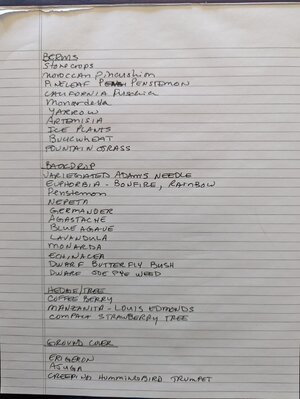 BERMS
STONECROPS
MOROCCAN PINCUSHION
PINELEAF PENSTEMON
CALIFORNIA FUSCHIA
MONARDELLA
YARROW
ARTEMISIA
ICE PLANTS
BUCKWHEAT
FOUNTAIN GRASS
BACKDROP
VARIEGATED ADAMS NEEDLE
EUPHORBIA - BONFIRE, RAINBOW
PENSTEMON
NEPETA
GERMANDER
AGASTACHE
BLUE AGAVE
LAVANDULA
MONARDA
ECHINACEA
DWARF BUTTERFLY BUSH
DWARF JOE PYE WEED
HEDGE/TREE
COFFEE BERRY
MANZANITA - LOUIS EDMONDS
COMPACT STRAWBERRY TREE
GROUND COVER
ERIGERON
AJUGA
CREEPING HUMMINGBIRD TRUMPET